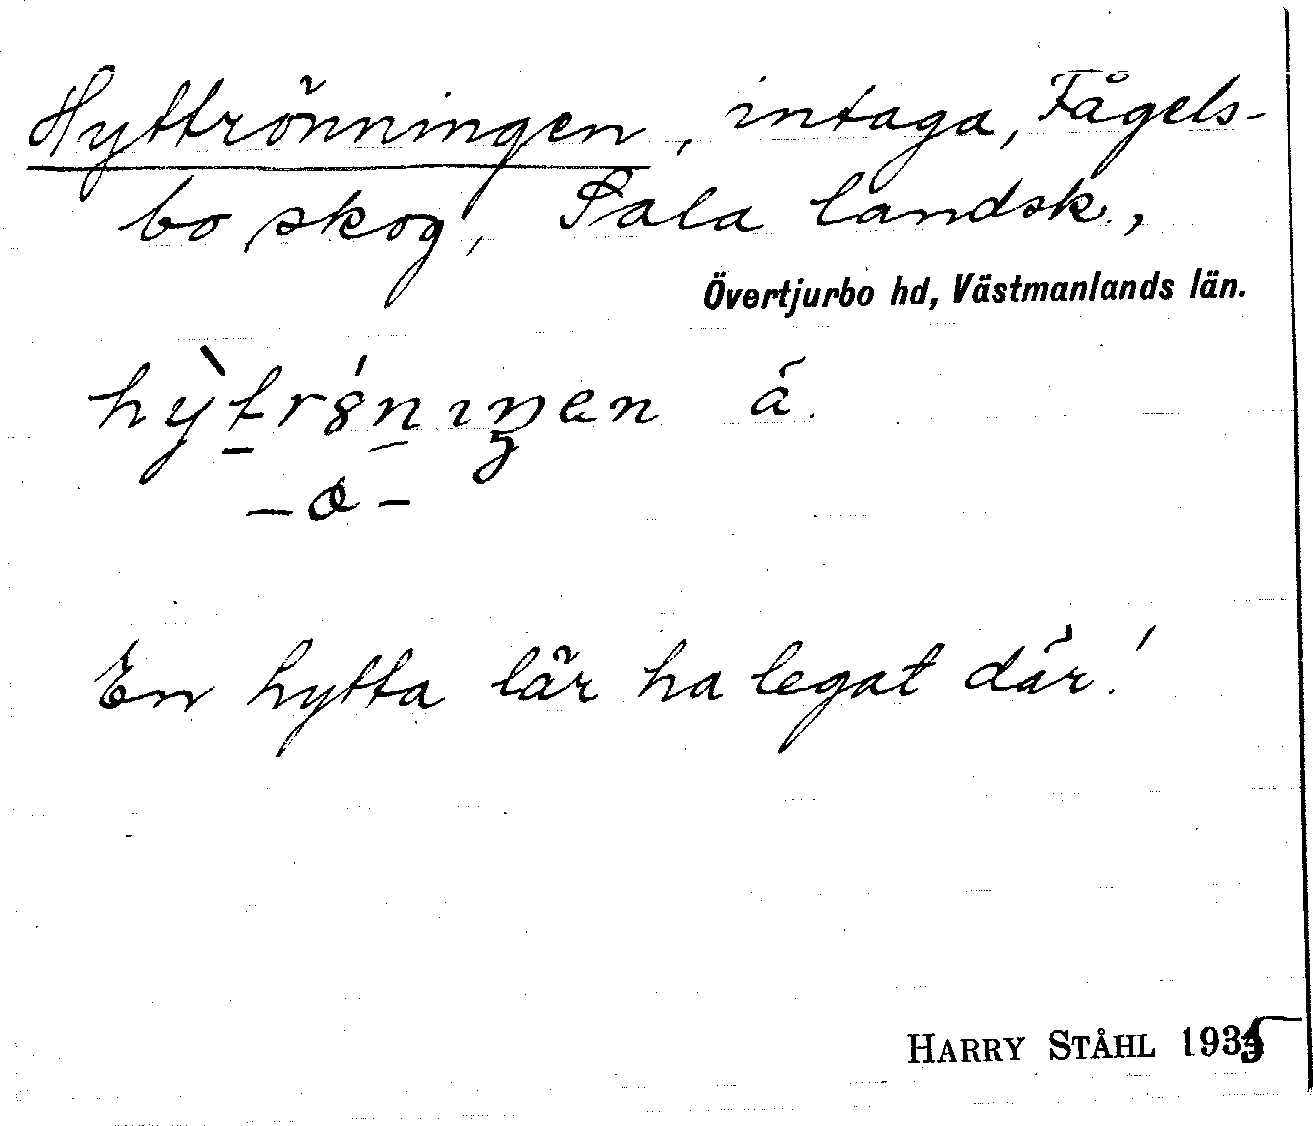 Hyttrönningen, intaga, Fågels-
bo skog, Sala landsk.,
Övertjurbo hd, Västmanlands län.
hỳtrǿniŋen å.
En hytta lär ha legat där!
HARRY STÅHL 1935